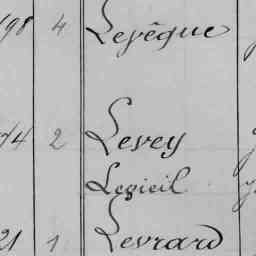 198 4 Levêque
74 2 Levey
Legieil
21 1 Levrard